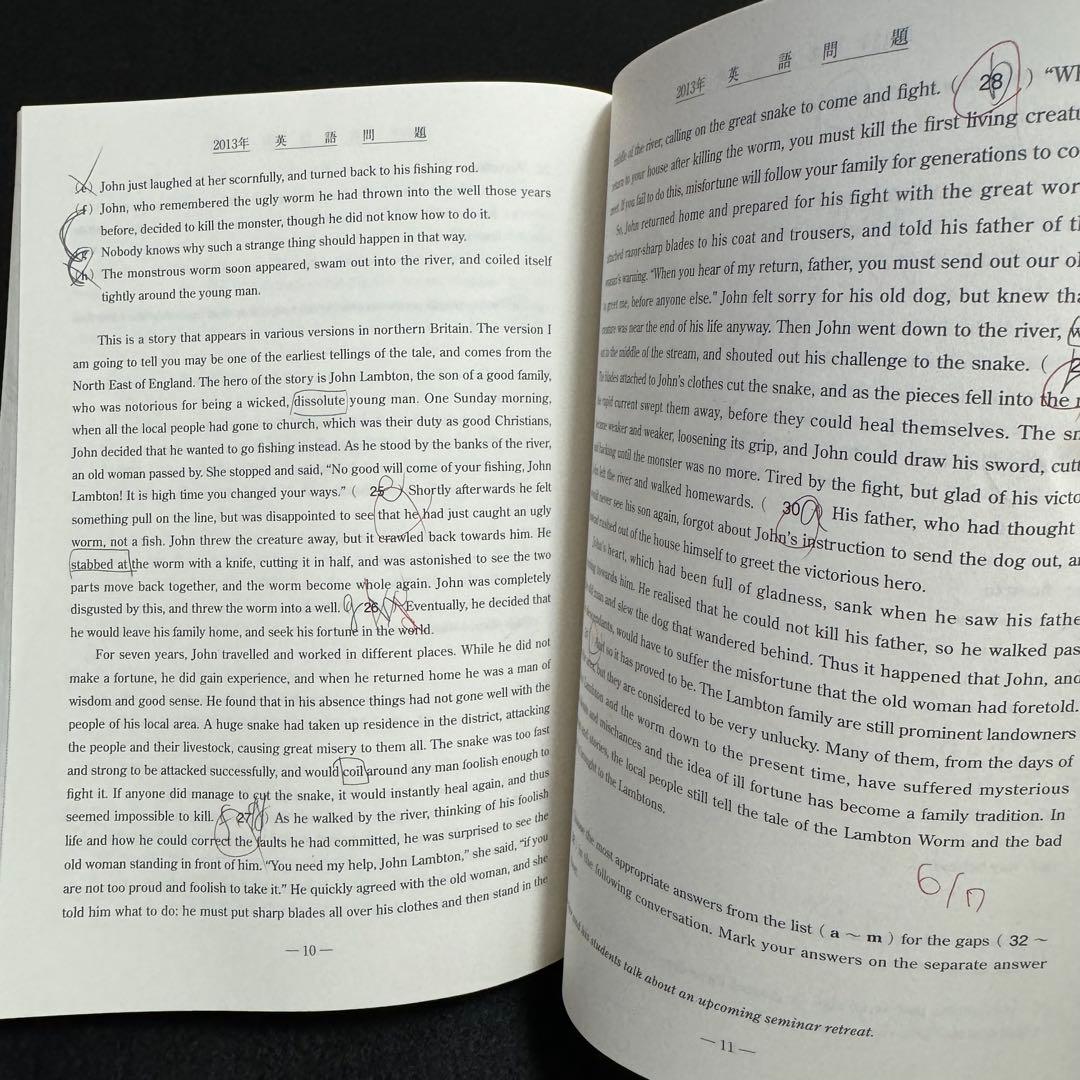 2013年 英語問題
(e) John just laughed at her scornfully, and turned back to his fishing rod.
(f) John, who remembered the ugly worm he had thrown into the well those years
before, decided to kill the monster, though he did not know how to do it.
(g) Nobody knows why such a strange thing should happen in that way.
(h) The monstrous worm soon appeared, swam out into the river, and coiled itself
tightly around the young man.
This is a story that appears in various versions in northern Britain. The version I
am going to tell you may be one of the earliest tellings of the tale, and comes from the
North East of England. The hero of the story is John Lambton, the son of a good family,
who was notorious for being a wicked, dissolute young man. One Sunday morning,
when all the local people had gone to church, which was their duty as good Christians,
John decided that he wanted to go fishing instead. As he stood by the banks of the river,
an old woman passed by. She stopped and said, “No good will come of your fishing, John
Lambton! It is high time you changed your ways.” ( 25 ) Shortly afterwards he felt
something pull on the line, but was disappointed to see that he had just caught an ugly
worm, not a fish. John threw the creature away, but it crawled back towards him. He
stabbed at the worm with a knife, cutting it in half, and was astonished to see the two
parts move back together, and the worm become whole again. John was completely
disgusted by this, and threw the worm into a well. ( 26 ) Eventually, he decided that
he would leave his family home, and seek his fortune in the world.
For seven years, John travelled and worked in different places. While he did not
make a fortune, he did gain experience, and when he returned home he was a man of
wisdom and good sense. He found that in his absence things had not gone well with the
people of his local area. A huge snake had taken up residence in the district, attacking
the people and their livestock, causing great misery to them all. The snake was too fast
and strong to be attacked successfully, and would coil around any man foolish enough to
fight it. If anyone did manage to cut the snake, it would instantly heal again, and thus
seemed impossible to kill. ( 27 ) As he walked by the river, thinking of his foolish
life and how he could correct the faults he had committed, he was surprised to see the
old woman standing in front of him. “You need my help, John Lambton,” she said, “if you
are not too proud and foolish to take it.” He quickly agreed with the old woman, and she
told him what to do: he must put sharp blades all over his clothes and then stand in the
— 10 —
2013年 英語問題
middle of the river, calling on the great snake to come and fight. ( 28 ) “
return to your house after killing the worm, you must kill the first living
If you fail to do this, misfortune will follow your family for generations to
So, John returned home and prepared for his fight with the great
attached razor-sharp blades to his coat and trousers, and told his father of
warning. “When you hear of my return, father, you must send out our
greet me, before anyone else.” John felt sorry for his old dog, but knew
creature was near the end of his life anyway. Then John went down to the river,
out to the middle of the stream, and shouted out his challenge to the snake. (
The blades attached to John’s clothes cut the snake, and as the pieces fell into the
rapid current swept them away, before they could heal themselves. The
became weaker and weaker, loosening its grip, and John could draw his sword,
and hacking until the monster was no more. Tired by the fight, but glad of his
left the river and walked homewards. ( 30 ) His father, who had thought
would never see his son again, forgot about John’s instruction to send the dog out,
rushed out of the house himself to greet the victorious hero.
John’s heart, which had been full of gladness, sank when he saw his
towards him. He realised that he could not kill his father, so he walked
old man and slew the dog that wandered behind. Thus it happened that John, and
descendants, would have to suffer the misfortune that the old woman had foretold.
And so it has proved to be. The Lambton family are still prominent landowners
but they are considered to be very unlucky. Many of them, from the days of
Lambton and the worm down to the present time, have suffered mysterious
and mischances and the idea of ill fortune has become a family tradition. In
stories, the local people still tell the tale of the Lambton Worm and the bad
brought to the Lambtons.
6/17
the most appropriate answers from the list ( a ～ m ) for the gaps ( 32 ～
in the following conversation. Mark your answers on the separate answer
students talk about an upcoming seminar retreat.
— 11 —